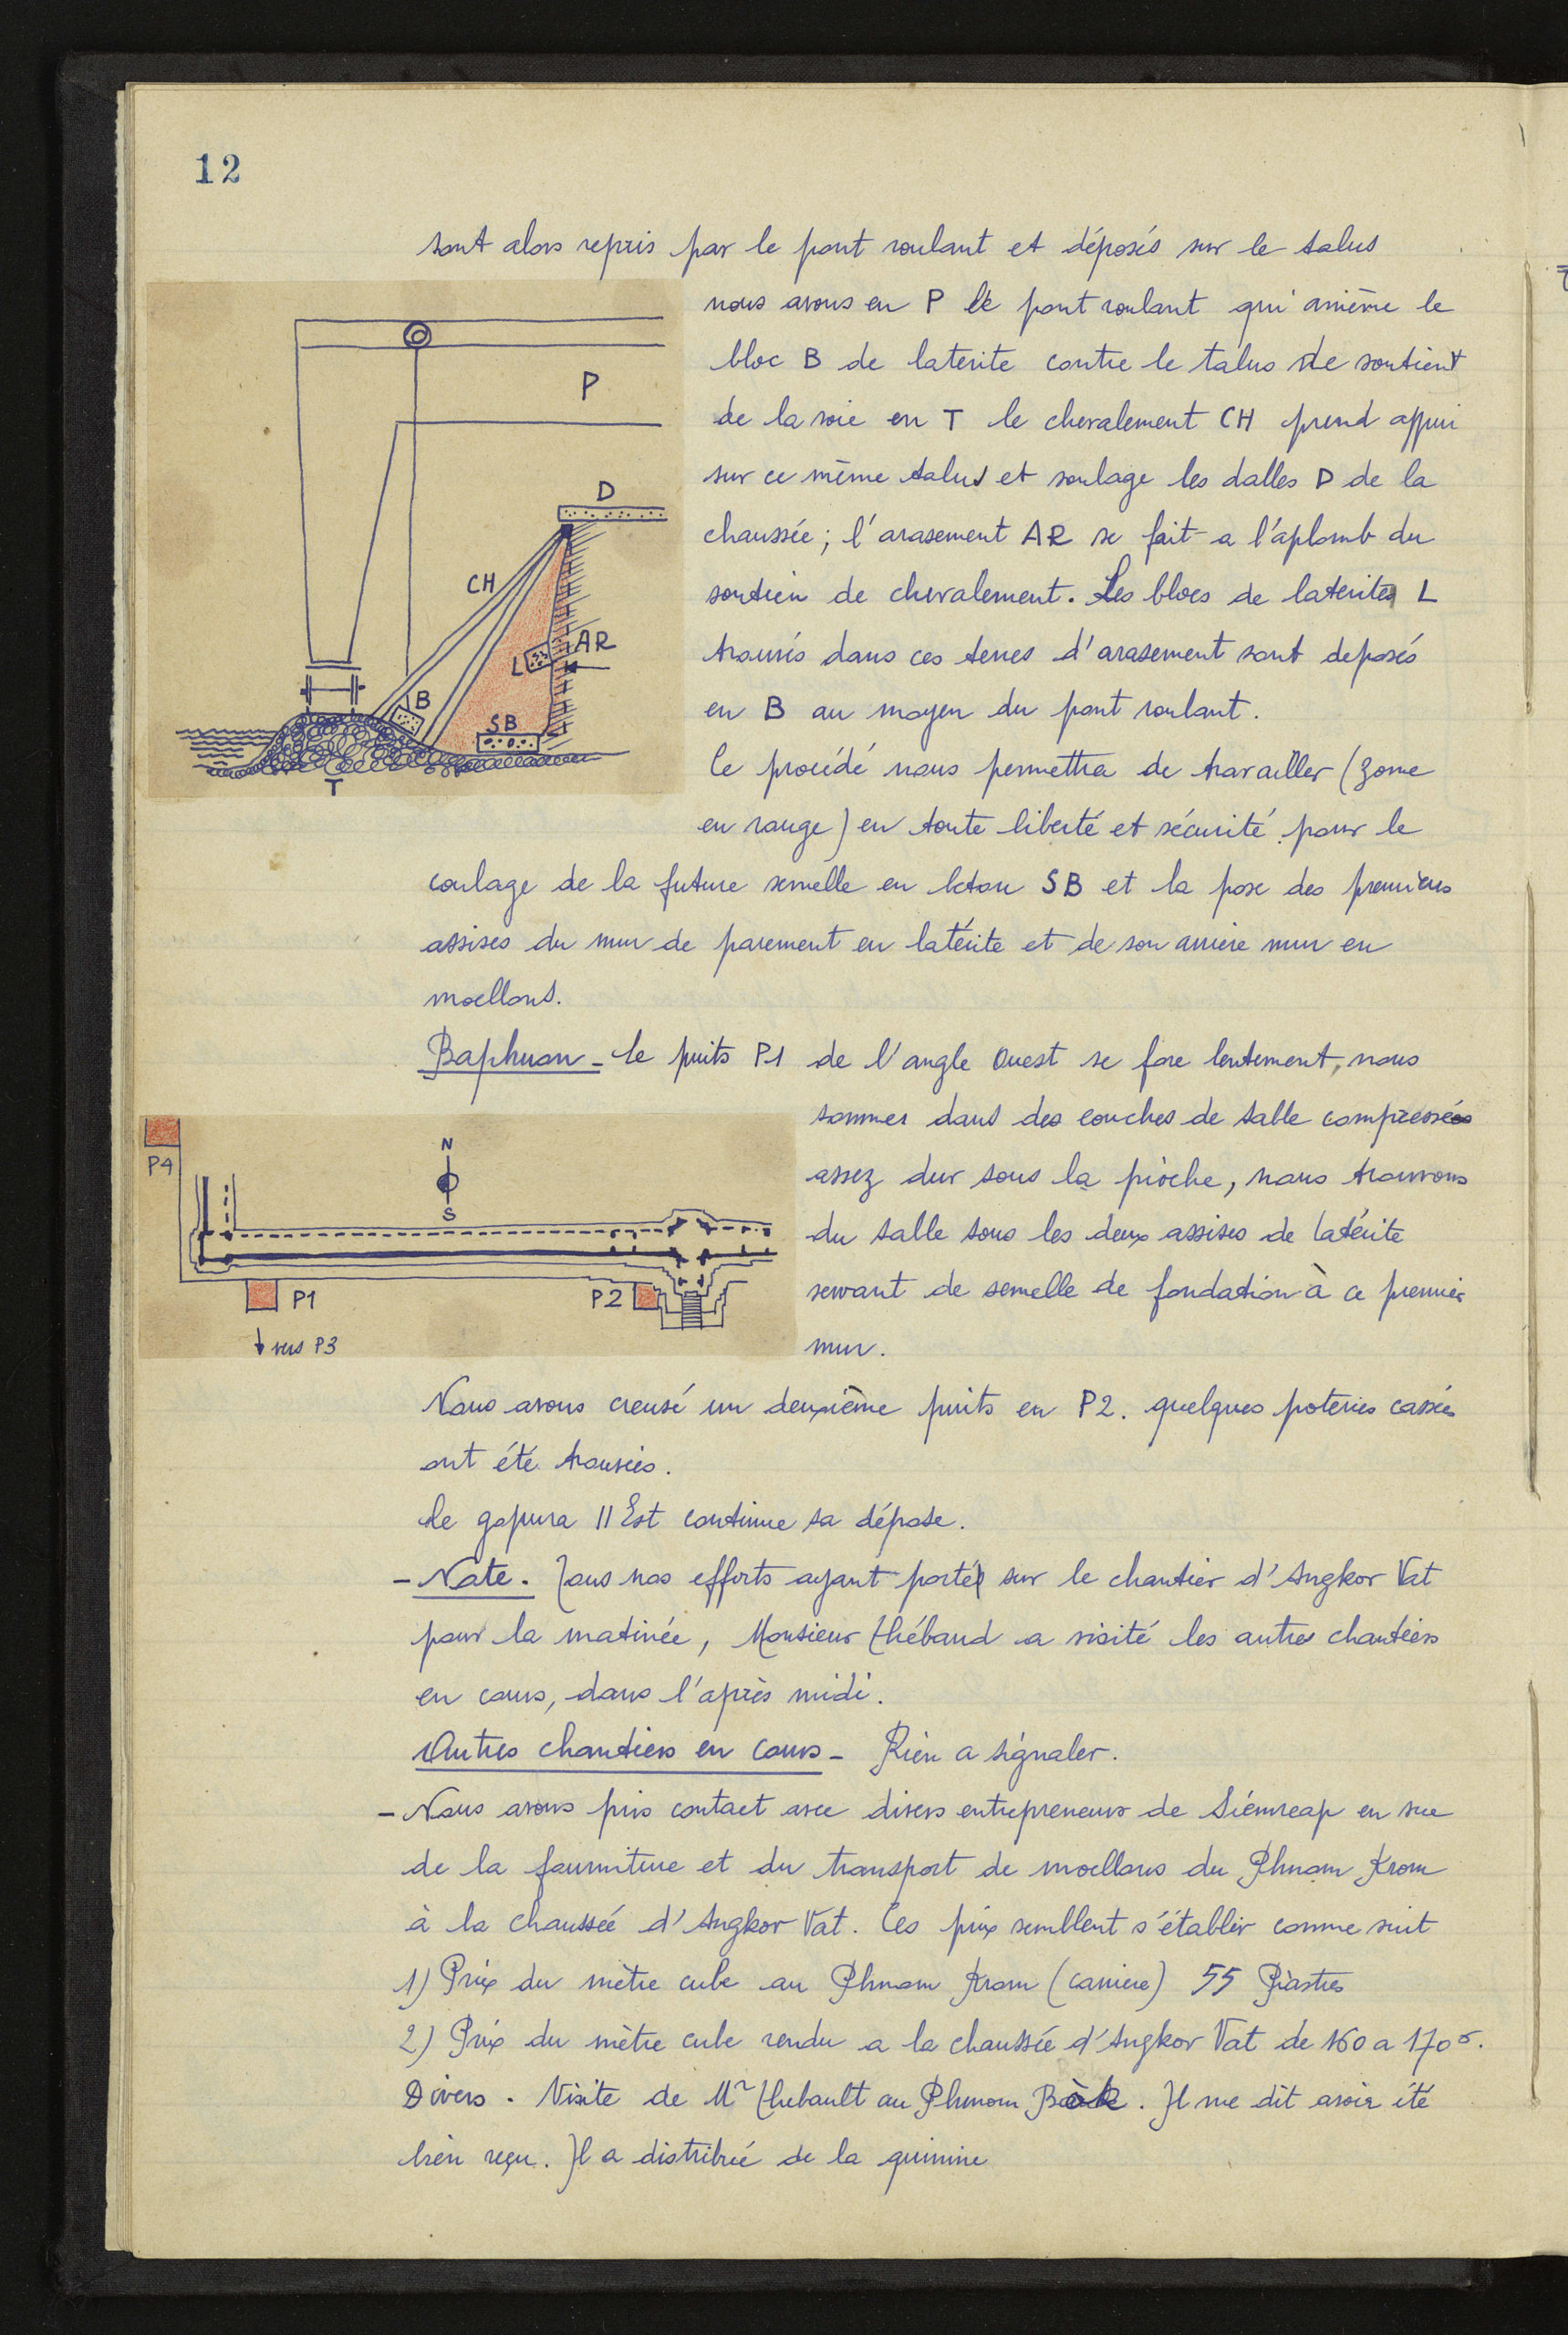 12
sont alors repris par le pont roulant et déposés sur le talus
nous avons en P le pont roulant qui amième le
bloc B de laterite contre le talus de soutient
de la voie en T le chevalement CH prend appui
sur ce même talus et soulage les dalles D de la
chaussée; l'arasement AR se fait a l'aplomb du
soutien de chevalement. Les blocs de laterite L
trouvés dans ces terres d'arasement sont deposés
en B au moyen du pont roulant.
Ce procédé nous permettra de travailler (zone
en rouge) en toute liberté et sécurité pour le
coulage de la future semelle en beton SB et la pose des premiers
assises du mur de parement en latérite et de son arriere mur en
moellons.
P
D
CH
AR
L
B
SB
T
Baphuon - Le puits P1 de l'angle Ouest se fore lentement, nous
sommes dans des couches de sable compressé
assez dur sous la pioche, nous trouvons
du sable sous les deux assises de latérite
servant de semelle de fondation à ce premier
mur.
P4
N
S
P1
P2
vers P3
Nous avons creusé un deuxième puits en P2. quelques poteries cassées
ont été trouvées.
Le gopura II Est continue sa dépose.
- Note. Tous nos efforts ayant porté sur le chantier d'Angkor Vat
pour la matinée, Monsieur Thébaud a visité les autres chantiers
en cours, dans l'après midi.
Autres chantiers en cours - Rien a signaler.
- Nous avons pris contact avec divers entrepreneurs de Siemreap en vue
de la fourniture et du transport de moellons du Phnom Krom
à la chaussée d'Angkor Vat. Ces prix semblent s'établir comme suit
1) Prix du mètre cube au Phnom Krom (carriere) 55 Piastres
2) Prix du mètre cube rendu a la chaussée d'Angkor Vat de 160 a 170
Divers. Visite de Mr Thebault au Phnom Bok. Il me dit avoir été
bien reçu. Il a distribué de la quinine